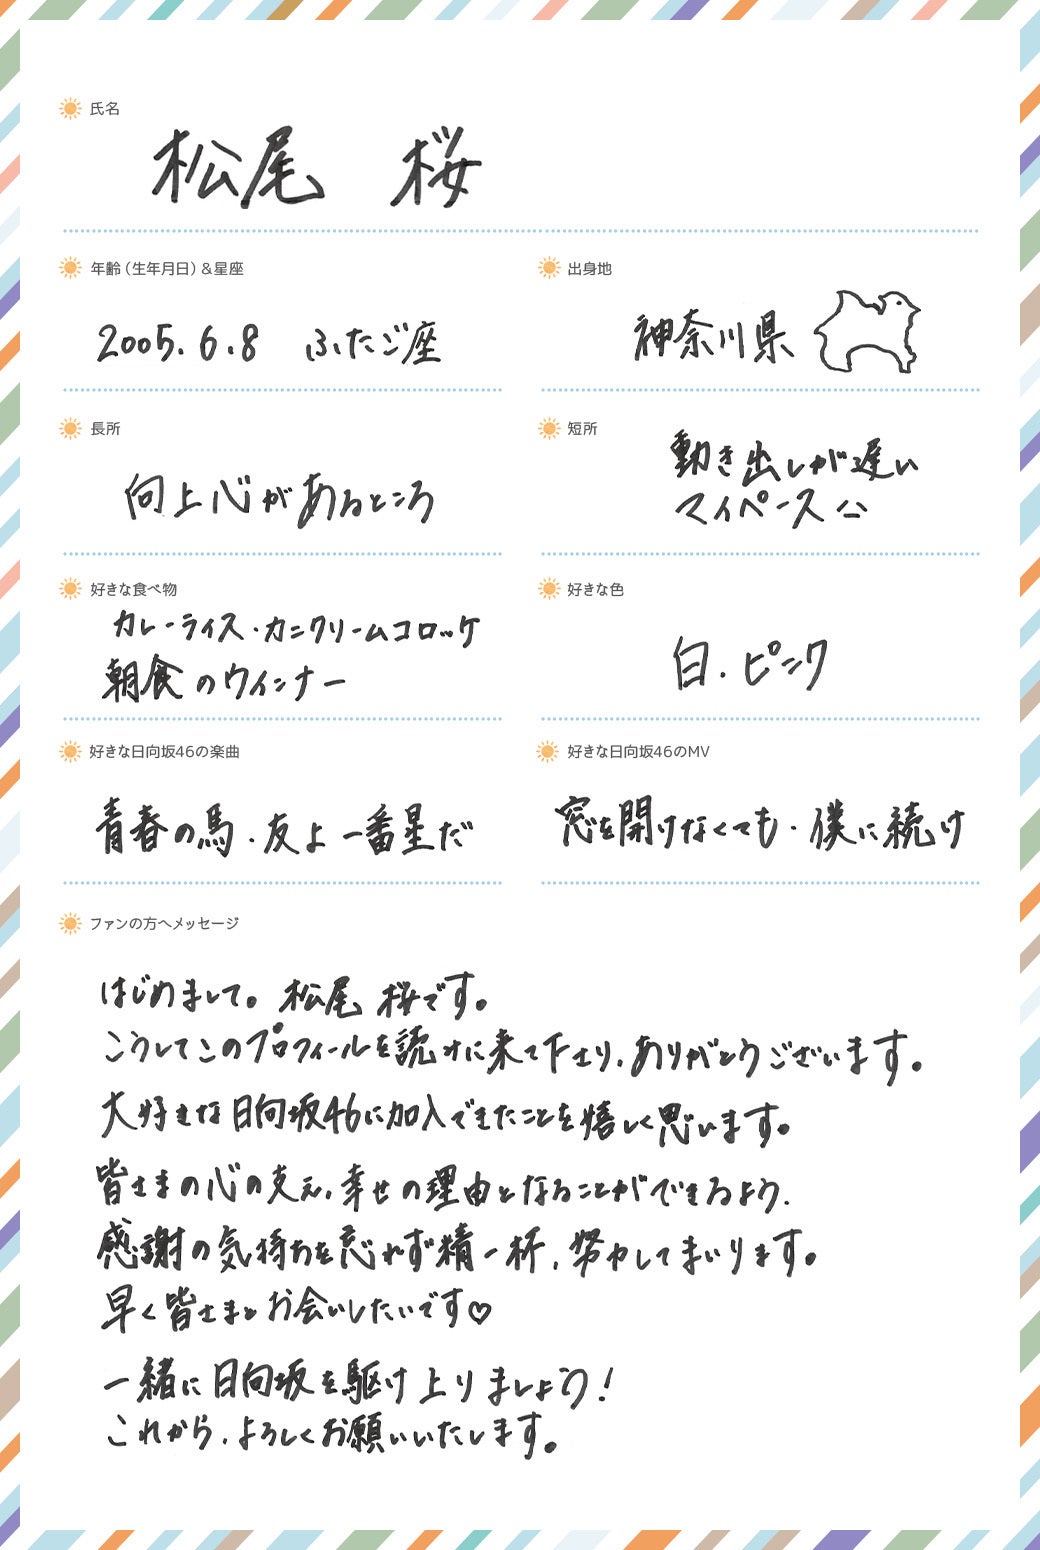 氏名
松尾 桜
年齢（生年月日）&星座
2005.6.8 ふたご座
出身地
神奈川県
長所
向上心があるところ
短所
動き出しが遅い
マイペース
好きな食べ物
カレーライス・カニクリームコロッケ
朝食のウインナー
好きな色
白・ピンク
好きな日向坂46の楽曲
青春の馬・友よ 一番星だ
好きな日向坂46のMV
窓を開けなくても・僕に続け
ファンの方へメッセージ
はじめまして。松尾 桜です。
こうしてこのプロフィールを読みに来て下さり、ありがとうございます。
大好きな日向坂46に加入できたことを嬉しく思います。
皆さまの心の支え、幸せの理由となることができるよう、
感謝の気持ちを忘れず精一杯、努力してまいります。
早く皆さまとお会いしたいです♡
一緒に日向坂を駆け上りましょう！
これから、よろしくお願いいたします。